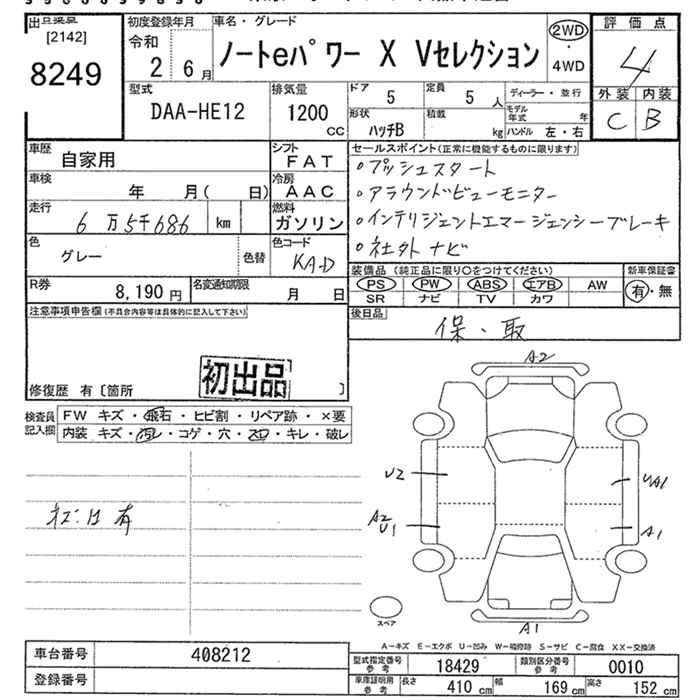 [2142]
8249
初度登録年月
令和
2 6月
車名・グレード
ノートeパワー X Vセレクション
2WD
・
4WD
評価点
4
外装 内装
C B
型式
DAA-HE12
排気量
1200
CC
ドア
5
定員
5 人
ディーラー・並行
形状
ハッチB
積載
kg
モデル年式 年
ハンドル 左・右
車歴
自家用
シフト
FAT
車検
年 月( 日)
冷房
AAC
走行
6万5千686 km
燃料
ガソリン
色
グレー
色替
色コード
KAD
R券
8,190円
名変通知期限
月 日
セールスポイント(正常に機能するものに限ります)
○プッシュスタート
○アラウンドビューモニター
○インテリジェントエマージェンシーブレーキ
○社外ナビ
装備品(純正品に限り○をつけてください)
PS PW ABS エアB AW
SR ナビ TV カワ
新車保証書
有・無
後日品
保・取
注意事項申告欄(不具合内容等は具体的に記入して下さい)
初出品
修復歴 有〔箇所 〕
検査員記入欄
FW キズ・飛石・ヒビ割・リペア跡・×要
内装 キズ・汚レ・コゲ・穴・スレ・キレ・破レ
A2
U2
UA1
A2
U1
A1
A1
スペア
A-キズ E-エクボ U-凹み W-補修跡 S-サビ C-腐食 XX-交換済
車台番号
408212
登録番号
型式指定番号参考
18429
類別区分番号参考
0010
車庫証明用参考
長さ 410 cm 幅 169 cm 高さ 152 cm